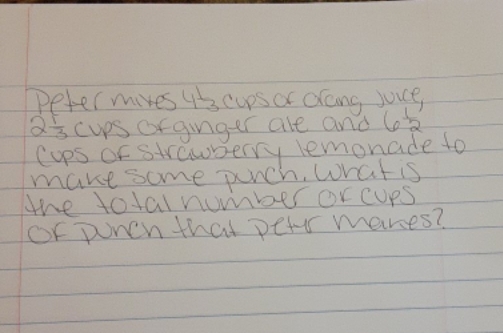 Peter mixes 4 1/3 cups of orang juice,
2 1/3 cups of ginger ale and 6 1/2
cups of strawberry lemonade to
make some punch. What is
the total number of cups
of punch that peter makes?